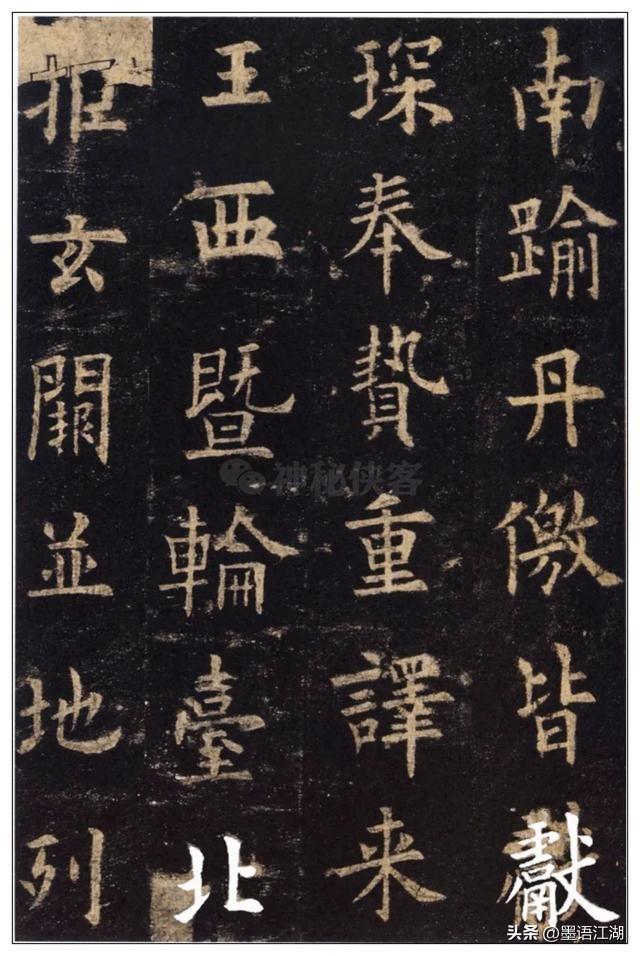 南踰丹儌皆獻
琛奉贄重譯来
王西暨輪臺北
拒玄闕並地列
神秘侠客
头条 @墨语江湖